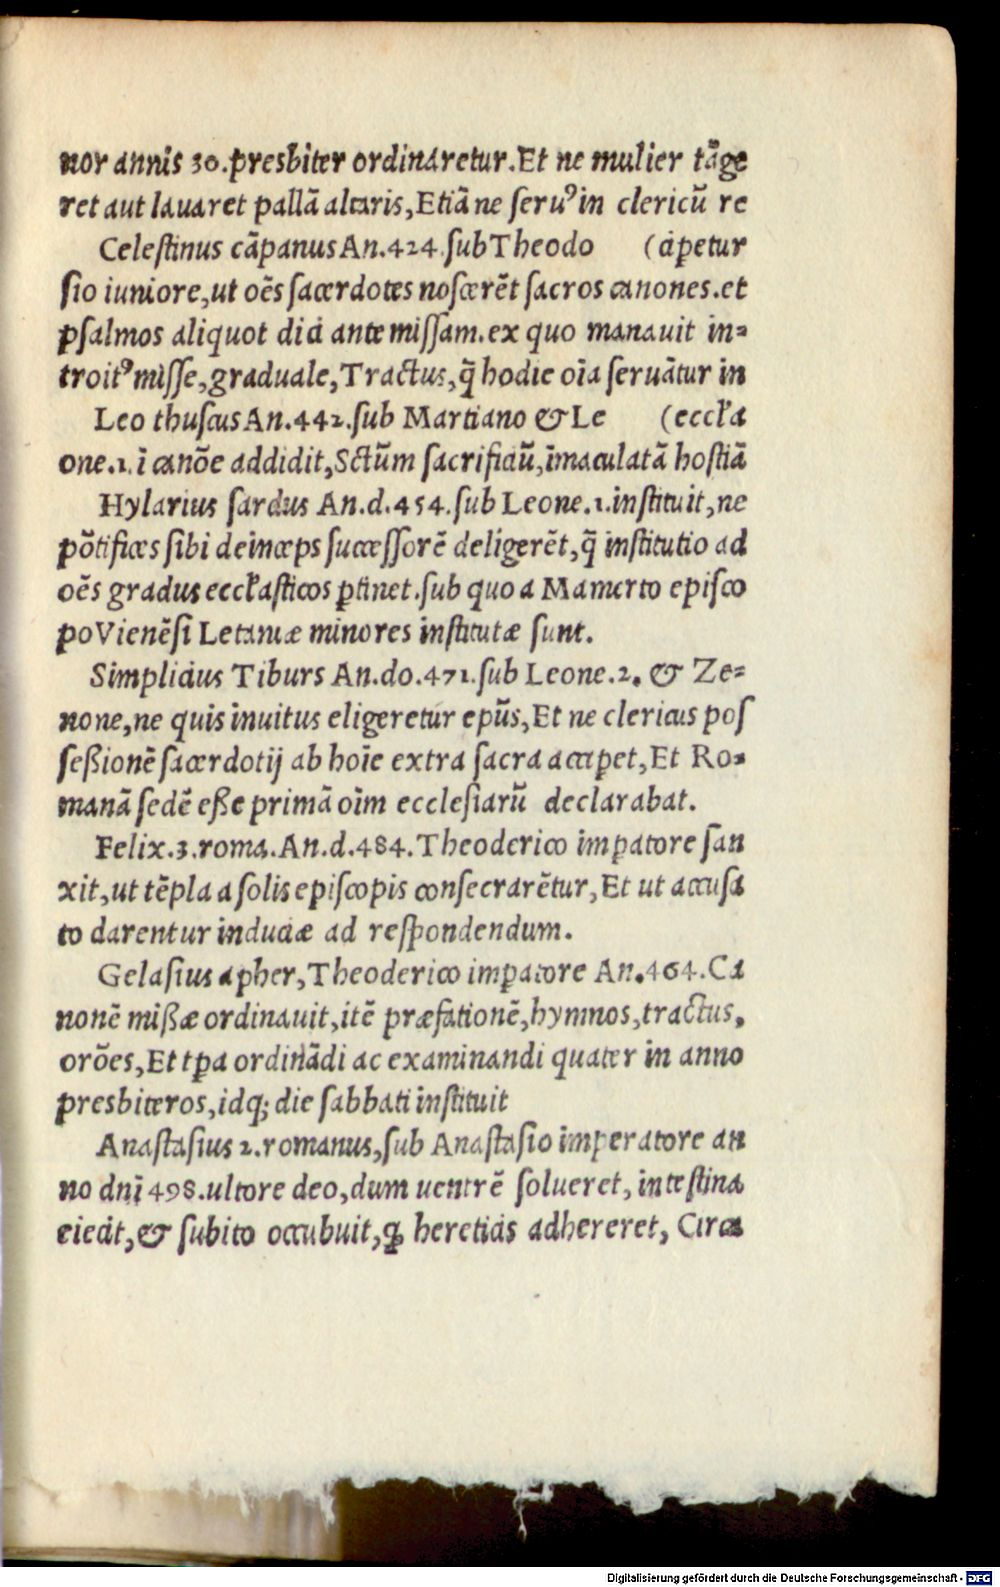 nor annis 30.presbiter ordinaretur.Et ne mulier tãge
ret aut lauaret pallã altaris,Etiã ne seruꝰ in clericũ re
Celestinus cãpanus An.424.sub Theodo (cipetur
sio iuniore,ut oẽs sacerdotes noscerẽt sacros canones.et
psalmos aliquot dici ante missam.ex quo manauit in=
troitꝰ misse,graduale,Tractus,q̃ hodie oĩa seruãtur in
Leo thuscus An.442.sub Martiano & Le (eccl̃a
one.1.ĩ canõe addidit,Sctũm sacrificiũ,ĩmaculatã hostiã
Hylarius sardus An.d.454.sub Leone.1.instituit,ne
põtifices sibi deinceps successorẽ deligerẽt,q̃ institutio ad
oẽs gradus eccl̃asticos ꝑtinet.sub quo a Mamerto episco
po Vienẽsi Letaniæ minores institutæ sunt.
Simplicius Tiburs An.do.471.sub Leone.2. & Ze=
none,ne quis inuitus eligeretur epũs,Et ne clericus pos
seßionẽ sacerdotij ab hoĩe extra sacra acciꝑet,Et Ro=
manã sedẽ eße primã oĩm ecclesiarũ declarabat.
Felix.3.roma.An.d.484.Theoderico imꝑatore san
xit,ut tẽpla a solis episcopis consecrarẽtur,Et ut accusa
to darentur induciæ ad respondendum.
Gelasius apher,Theoderico imꝑatore An.464.Ca
nonẽ mißæ ordinauit,itẽ præfationẽ,hymnos,tractus,
orões,Et tꝑa ordinãdi ac examinandi quater in anno
presbiteros,idq; die sabbati instituit
Anastasius 2.romanus,sub Anastasio imperatore an
no dnĩ 498.ultore deo,dum uentrẽ solueret,intestina
eiecit,& subito occubuit,ꝙ hereticis adhereret, Circa
Digitalisierung gefördert durch die Deutsche Forschungsgemeinschaft - DFG